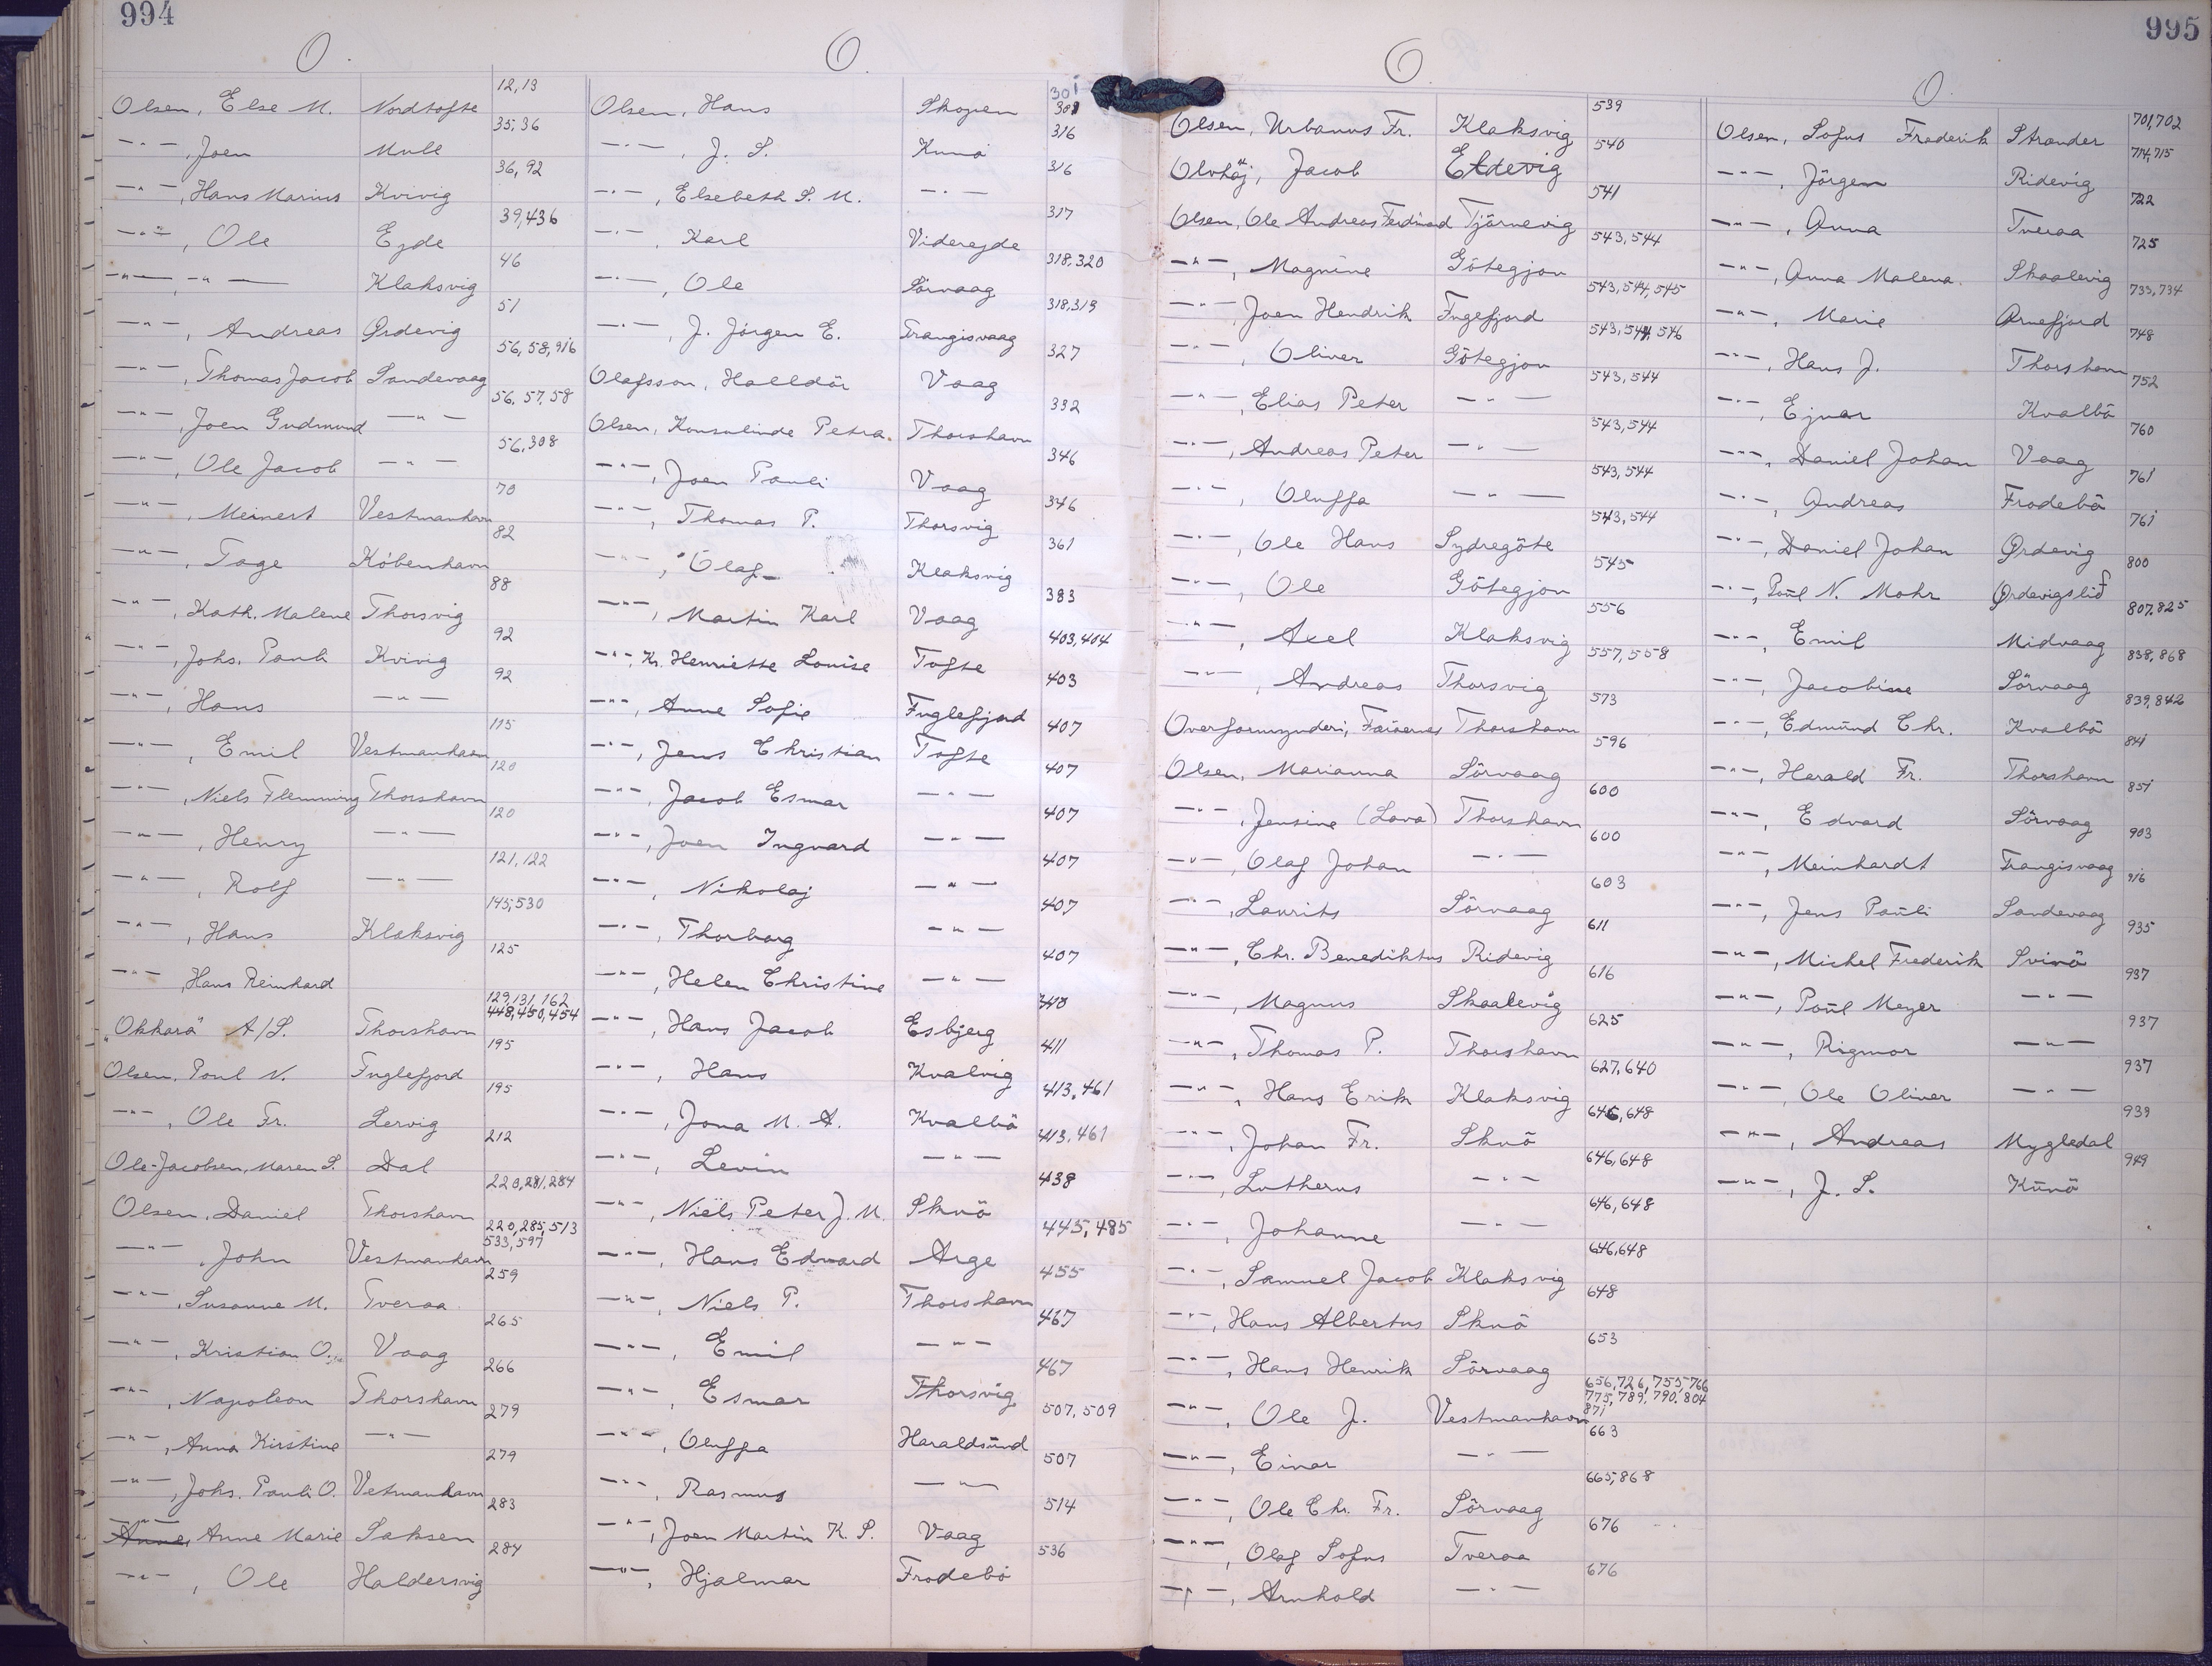 994
O.
Olsen, Else M. Nordtofte 12,13
—"—, Joen Mule 35,36
—"—, Hans Marius Kvivig 36,92
—"—, Ole Ejde 39,436
—"—, —"— Klaksvig 46
—"—, Andreas Ørdevig 51
—"—, Thomas Jacob Sandevaag 56,58,916
—"—, Joen Gudmund —"— 56,57,58
—"—, Ole Jacob —"— 56,308
—"—, Meinert Vestmanhavn 70
—"—, Tage København 82
—"—, Kath. Malene Thorsvig 88
—"—, Johs. Pauli Kvivig 92
—"—, Hans —"— 92
—"—, Emil Vestmanhavn 115
—"—, Niels Flemming Thorshavn 120
—"—, Henry —"— 120
—"—, Rolf —"— 121,122
—"—, Hans Klaksvig 145,530
—"— Hans Reinhard 125
"Okkara" A/S. Thorshavn 129,131,162
448,450,454
Olsen, Poul N. Fuglefjord 195
—"—, Ole Fr. Lervig 195
Ole-Jacobsen, Maren S. Dal 212
Olsen, Daniel Thorshavn 220,281,284
—"—, John Vestmanhavn 220,285,513
533,597
—"—, Susanne M. Tveraa 259
—"—, Kristian O. Vaag 265
—"—, Napoleon Thorshavn 266
—"—, Anna Kirstine —"— 279
—"—, Johs. Pauli O. Vetmanhavn 279
—"— Anne, Anne Marie Saksen 283
—"—, Ole Haldersvig 284
O.
Olsen, Hans Skopen 301
—"—, J. S. Kunø 316
—"—, Elsebeth S. M. —"— 316
—"—, Karl Viderejde 317
—"—, Ole Sörvaag 318,320
—"—, J. Jörgen E. Trangisvaag 318,319
Olafsson, Halldór Vaag 327
Olsen, Konsulinde Petra. Thorshavn 332
—"—, Joen Pauli Vaag 346
—"—, Thomas P. Thorsvig 346
—"—, Olaf Klaksvig 361
—"—, Martin Karl Vaag 383
—"—, Kr. Henriette Louise Tofte 403,404
—"—, Anne Sofie Fuglefjord 403
—"—, Jens Christian Tofte 407
—"—, Jacob Esmar —"— 407
—"—, Joen Ingvard —"— 407
—"—, Nikolaj —"— 407
—"—, Thorborg —"— 407
—"—, Helen Christine —"— 407
—"—, Hans Jacob Esbjerg 410
—"—, Hans Kvalvig 411
—"—, Jona M. A. Kvalbö 413,461
—"—, Levin —"— 413,461
—"—, Niels Peter J. M. Skuö 438
—"—, Hans Edvard Arge 445,485
—"—, Niels P. Thorshavn 455
—"—, Emil —"— 467
—"—, Esmar Thorsvig 467
—"—, Oluffa Haraldsund 507,509
—"—, Rasmus —"— 507
—"—, Joen Martin K. S. Vaag 514
—"—, Hjalmar Frodebö 536
995
O.
Olsen, Urbanus Fr. Klaksvig 539
Olvhöj, Jacob Eldevig 540
Olsen, Ole Andreas Ferdinad Tjörnevig 541
—"—, Magnine Götegjov 543,544
—"—, Joen Hendrik Fuglefjord 543,544,545
—"—, Oliver Götegjov 543,544,546
—"—, Elias Peter —"— 543,544
—"—, Andreas Peter —"— 543,544
—"—, Oluffa —"— 543,544
—"—, Ole Hans Sydregöte 543,544
—"—, Ole Götegjov 545
—"—, Axel Klaksvig 556
—"—, Andreas Thorsvig 557,558
Overformynderi, Færøernes Thorshavn 573
Olsen, Marianna Sörvaag 596
—"—, Jensine (Lava) Thorshavn 600
—"—, Olaf Johan —"— 600
—"—, Laurits Sörvaag 603
—"—, Chr. Benediktus Ridevig 611
—"—, Magnus Skaalevig 616
—"—, Thomas P. Thorshavn 625
—"—, Hans Erik Klaksvig 627,640
—"—, Johan Fr. Skuö 646,648
—"—, Lutherus —"— 646,648
—"—, Johanne —"— 646,648
—"—, Samuel Jacob Klaksvig 646,648
—"—, Hans Albertus Skuö 648
—"—, Hans Henrik Sörvaag 653
—"—, Ole J. Vestmanhavn 656,726,755,766
775,789,790,804
871
—"—, Einar —"— 663
—"—, Ole Chr. Fr. Sörvaag 665,868
—"—, Olaf Sofus Tveraa 676
—"—, Arnhold —"— 676
O.
Olsen, Sofus Frederik Strander 701,702
—"—, Jörgen Ridevig 714,715
—"—, Anna Tveraa 722
—"—, Anna Malena. Skaalevig 725
—"—, Marie Ørnefjord 733,734
—"—, Hans J. Thorshavn 748
—"—, Ejnar Kvalbö 752
—"—, Daniel Johan Vaag 760
—"—, Andreas Frodebö 761
—"—, Daniel Johan Ørdevig 761
—"—, Poul N. Mohr Ørdevigslid 800
—"—, Emil Midvaag 807,825
—"—, Jacobine Sörvaag 838,868
—"—, Edmund Chr. Kvalbö 839,842
—"—, Herald Fr. Thorshavn 841
—"—, Edvard Sörvaag 851
—"—, Meinhardt Trangisvaag 903
—"—, Jens Pauli Sandevaag 916
—"—, Michel Frederik Svinö 935
—"—, Poul Meyer —"— 937
—"—, Rigmor —"— 937
—"—, Ole Oliver —"— 937
—"—, Andreas Mygledal 939
—"—, J. S. Kunö 949